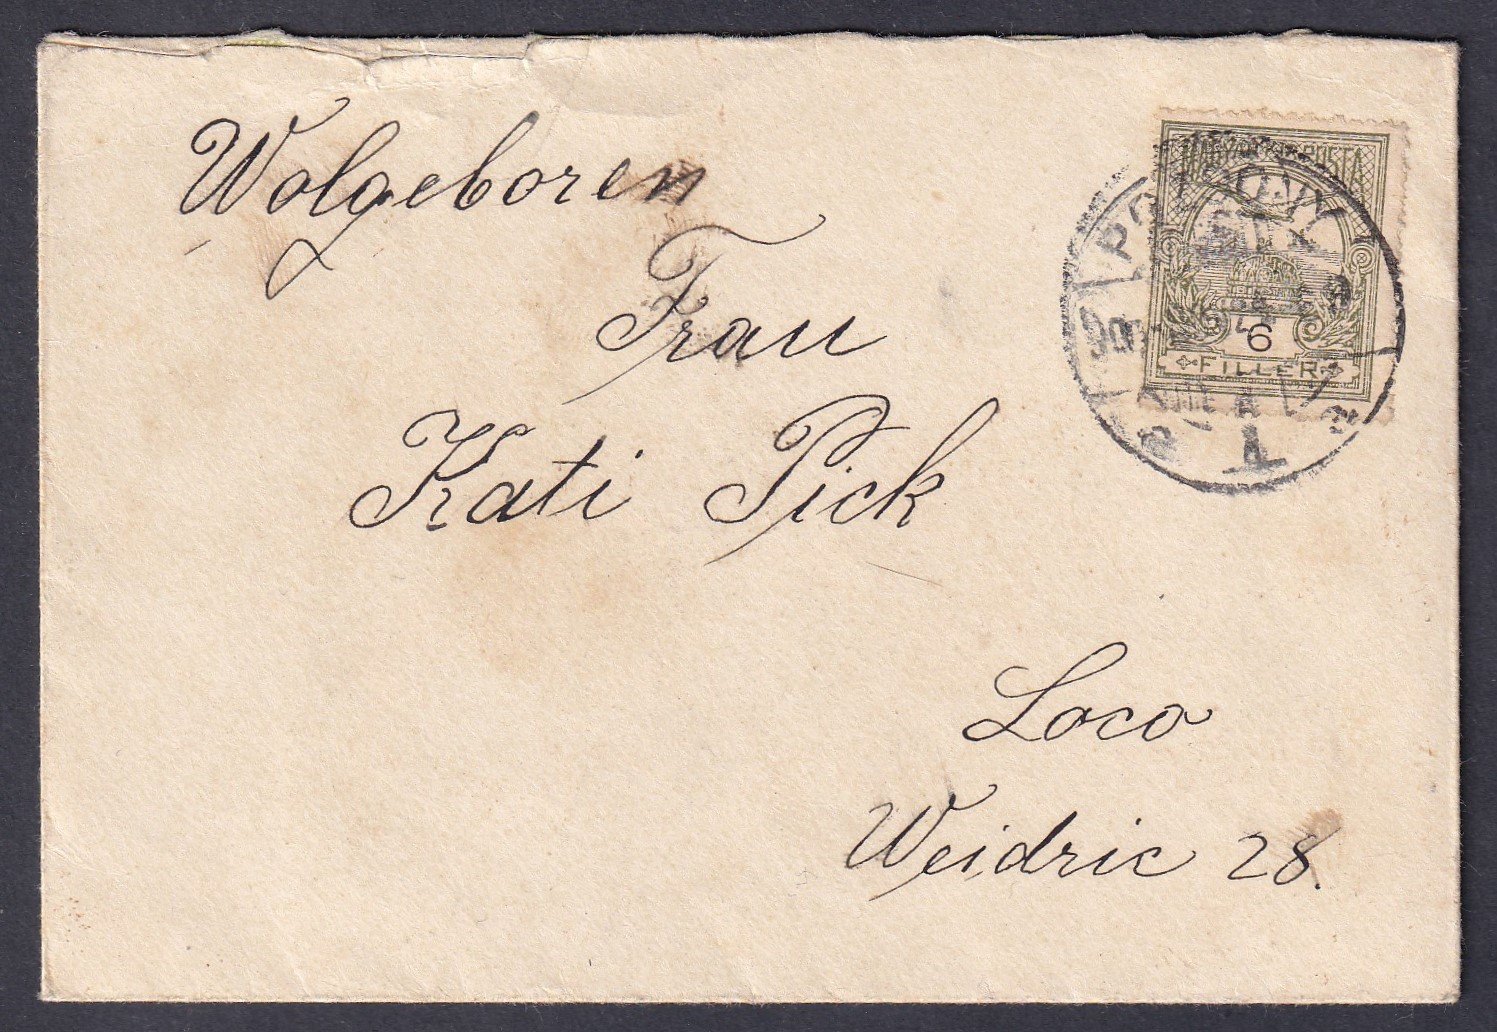 Wolgeboren
Frau
Kati Pick
Loco
Weidric 28.
MAGYAR KIR. POSTA
POZSONY
6
FILLER